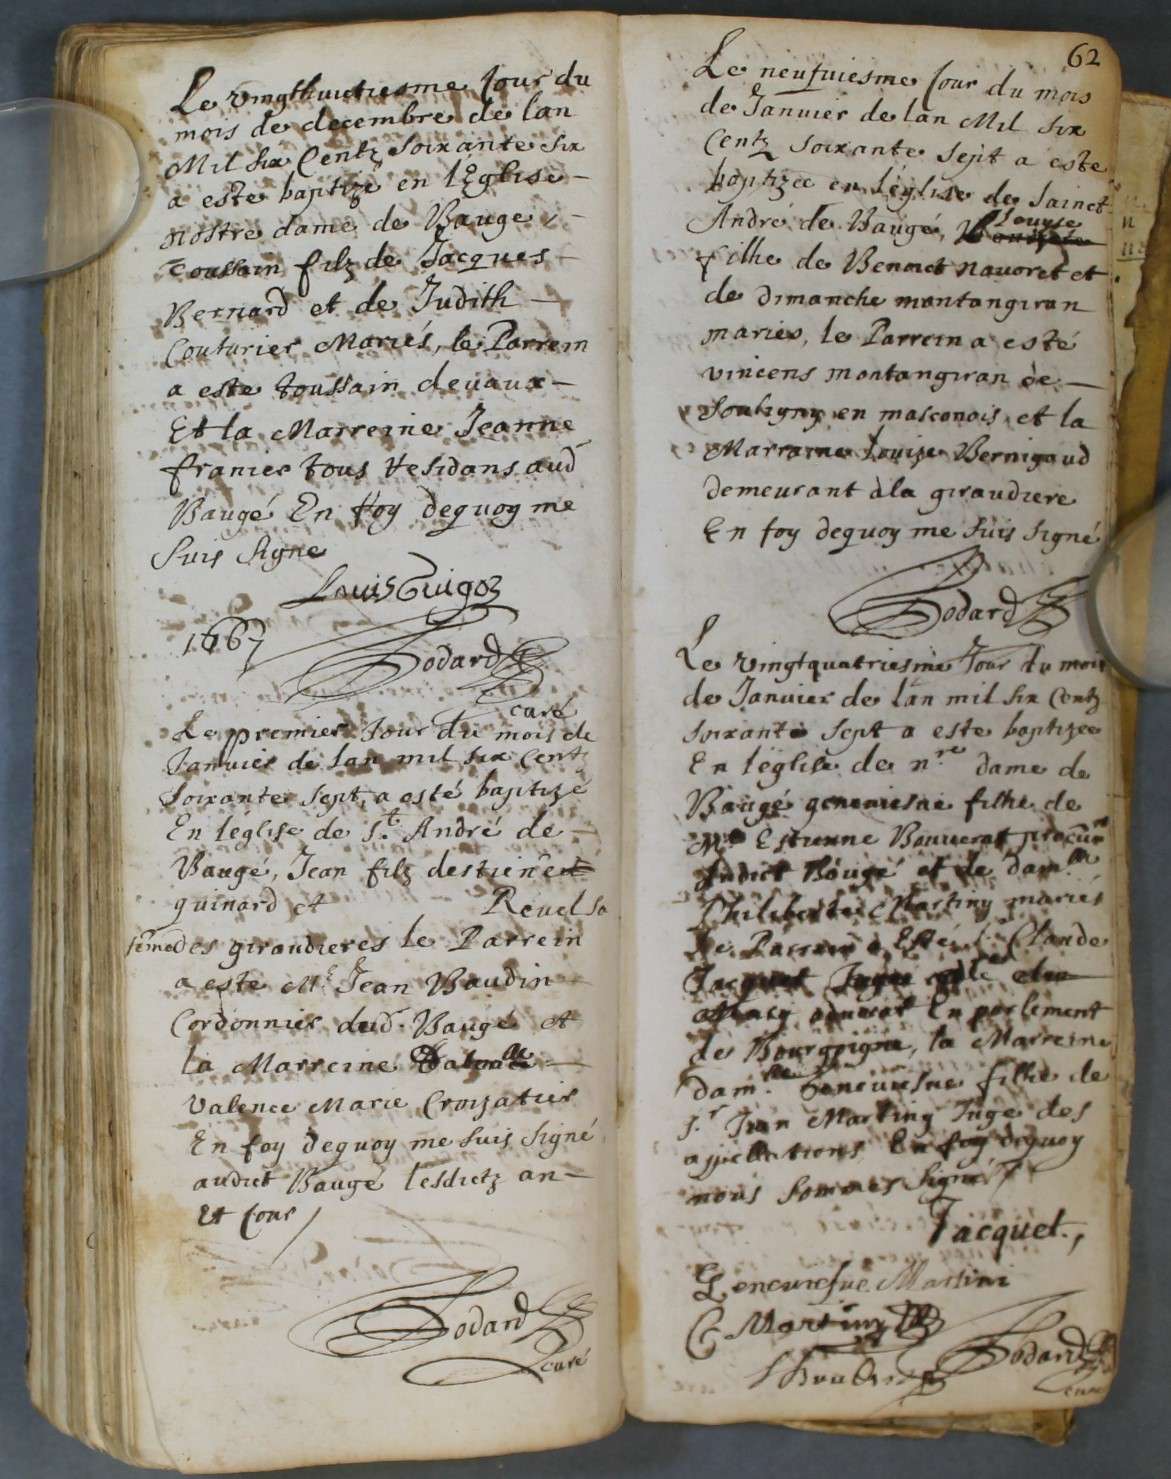 Le vingthuictiesme Jour du
mois de decembre de lan
Mil Six Centz Soixante Six
a este baptizé en lEglise
nostre dame de Baugé
Toussain filz de Jacques
Bernard et de Judith
Couturier Mariés, le Parrein
a este toussain devaux
Et la Marreine Jeanne
franier tous residans aud
Baugé En foy dequoy me
Suis Signe
Louis Guigoz
1667
Bodard
curé
Le premier Jour du mois de
Januier de lan mil six Centz
Soixante Sept, a esté baptizé
En léglise de St. André de
Baugé, Jean filz destienne
guinard et Reuel sa
feme des giraudieres le Parrein
a este Mr Jean Baudin
Cordonnier dud. Baugé et
la Marreine
Valence Marie Croizatier
En foy dequoy me suis signé
audict Baugé lesdictz an
Et Jour
Bodard
curé
62
Le neufuiesme Jour du mois
de Januier de lan Mil Six
Centz Soixante Sept a este
baptizée en léglise de Sainct
André de Baugé, Louyse
filhe de Benoict nauoret et
de dimanche montangiran
mariés, le Parrein a esté
vincens montangiran de
Soutigny en masconois et la
Marraine Louize Bernigaud
demeurant à la giraudiere
En foy dequoy me suis signé
Bodard
Le vingtquatriesme Jour du mois
de Januier de lan mil six Centz
soixante sept a este baptizee
En l'église de nre dame de
Baugé geneuiesue filhe de
Me Estienne Bouuerat procur
Audict Baugé et de damlle
Philiberte Martiny mariés
Le Parrain a Esté Sr Claude
Jacquet
aduocat En parlement
de Bourgoigne, la Marreine
damlle Geneuiesue filhe de
sr Jean Martiny Juge des
appellations En foy dequoy
nous sommes signé
Jacquet,
Geneuiefue Martini
C Martiny
Bodard
curé